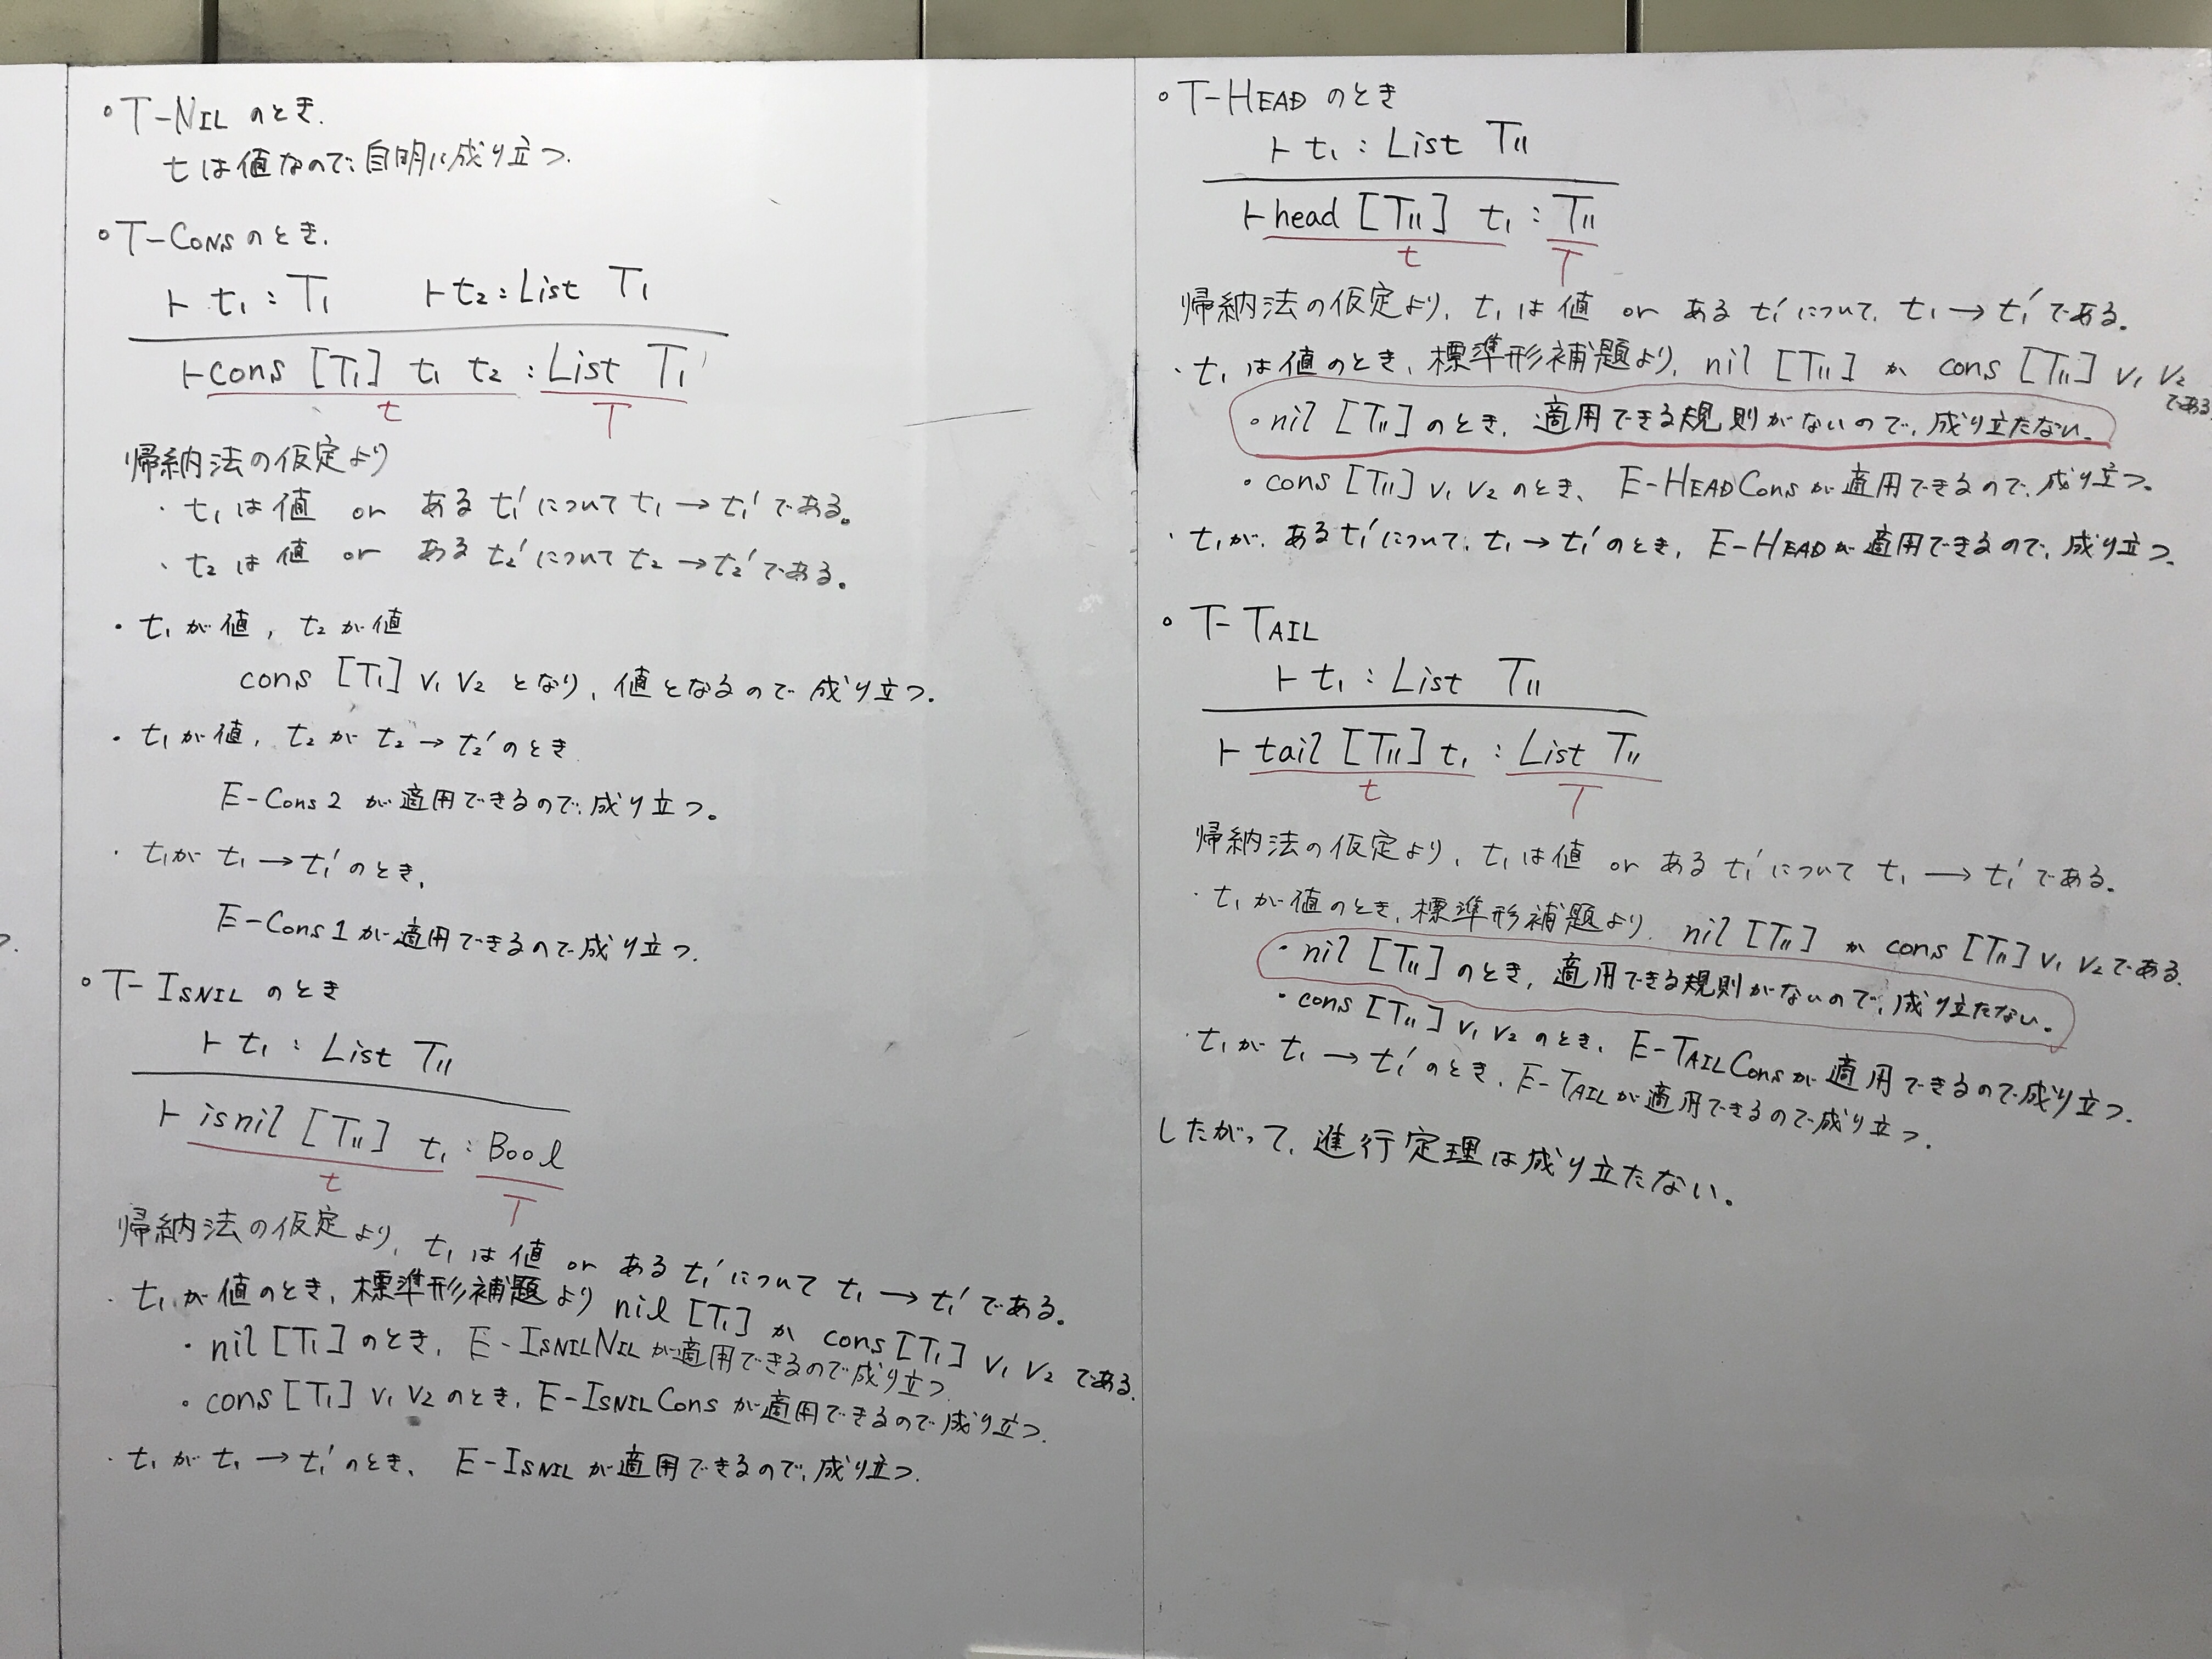 。T-NILのとき.
tは値なので、自明に成り立つ.
。T-CONSのとき.
⊢ t₁ : T₁  ⊢ t₂ : List T₁
⊢ cons [T₁] t₁ t₂ : List T₁
t  T
帰納法の仮定より
・t₁は値 or ある t₁'について t₁ → t₁'である。
・t₂は値 or ある t₂'について t₂ → t₂'である。
・t₁が値, t₂が値
cons [T₁] v₁ v₂ となり, 値となるので成り立つ.
・t₁が値, t₂が t₂ → t₂'のとき
E-Cons2 が適用できるので、成り立つ。
・t₁が t₁ → t₁'のとき,
E-Cons1が適用できるので成り立つ.
。T-ISNIL のとき
⊢ t₁ : List T₁₁
⊢ isnil [T₁₁] t₁ : Bool
t  T
帰納法の仮定より, t₁は値 or ある t₁'について t₁ → t₁'である.
・t₁が値のとき, 標準形補題より nil [T₁] か cons [T₁] v₁ v₂ である.
・nil [T₁] のとき, E-ISNILNILが適用できるので成り立つ
。cons [T₁] v₁ v₂ のとき, E-ISNILCons が適用できるので成り立つ.
・t₁が t₁ → t₁'のとき、 E-ISNIL が適用できるので、成り立つ.
。T-HEAD のとき
⊢ t₁ : List T₁₁
⊢ head [T₁₁] t₁ : T₁₁
t  T
帰納法の仮定より, t₁は値 or ある t₁'について, t₁ → t₁'である.
・t₁は値のとき, 標準形補題より, nil [T₁₁] か cons [T₁₁] v₁ v₂
である
。nil [T₁₁] のとき, 適用できる規則がないので, 成り立たない.
・cons [T₁₁] v₁ v₂ のとき、 E-HEADCons が適用できるので、成り立つ.
・t₁が, ある t₁'について, t₁ → t₁'のとき, E-HEADが適用できるので, 成り立つ.
。T-TAIL
⊢ t₁ : List T₁₁
⊢ tail [T₁₁] t₁ : List T₁₁
t  T
帰納法の仮定より, t₁は値 or ある t₁'について t₁ → t₁'である.
・t₁が値のとき, 標準形補題より, nil [T₁₁] か cons [T₁₁] v₁ v₂ である.
・nil [T₁₁] のとき, 適用できる規則がないので, 成り立たない.
・cons [T₁₁] v₁ v₂ のとき, E-TAILConsが適用できるので成り立つ.
・t₁が t₁ → t₁'のとき, E-TAILが適用できるので成り立つ.
したがって, 進行定理は成り立たない。